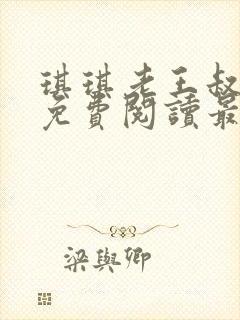 琪琪老王叔
免費閱讀最
梁與卿